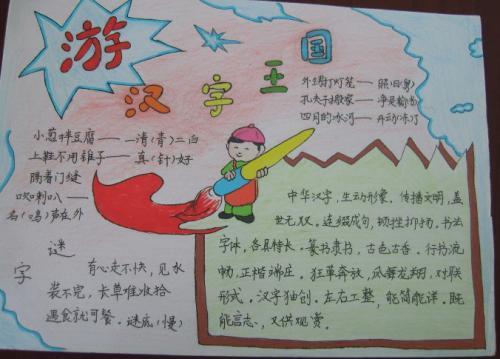 游
汉字王国
小葱拌豆腐——一清(青)二白
上鞋不用锥子——真(针)好
隔着门缝
吹喇叭——
名(鸣)声在外
外甥打灯笼——照旧(舅)
孔夫子搬家——净是输(书)
四月的冰河——开动(冻)了
谜
字
有心走不快，见水
装不完，长草难收拾
遇食就可餐．谜底(慢)
中华汉字，生动形象，传播文明，盖
世无双．连缀成句，顿挫抑扬．书法
字体，各具特长．篆书隶书，古色古香．行书流
畅，正楷端庄．狂草奔放，凤舞龙翔，对联
形式．汉字独创．左右工整，能简能详．既
能言志，又供观赏．